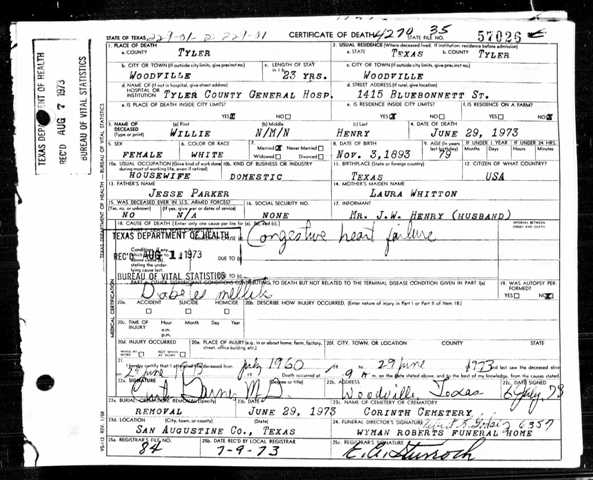 STATE OF TEXAS CERTIFICATE OF DEATH 35 STATE FILE NO. 57026
1. PLACE OF DEATH 2. USUAL RESIDENCE (Where deceased lived. If institution: residence before admission)
a. COUNTY TYLER a. STATE TEXAS b. COUNTY TYLER
b. CITY OR TOWN (If outside city limits, give precinct no.) c. LENGTH OF STAY c. CITY OR TOWN (If outside city limits, give precinct no.)
WOODVILLE 23 YRS. WOODVILLE
d. NAME OF (If not in hospital, give street address) HOSPITAL OR INSTITUTION TYLER COUNTY GENERAL HOSP. d. STREET ADDRESS (If rural, give location) 1415 BLUEBONNETT ST.
e. IS PLACE OF DEATH INSIDE CITY LIMITS? e. IS RESIDENCE INSIDE CITY LIMITS? f. IS RESIDENCE ON A FARM?
YES NO YES NO YES NO
3. NAME OF DECEASED (Type or print) (a) First WILLIE (b) Middle N/M/N (c) Last HENRY 4. DATE OF DEATH JUNE 29, 1973
5. SEX FEMALE 6. COLOR OR RACE WHITE 7. Married Never Married Widowed Divorced 8. DATE OF BIRTH NOV. 3, 1893 9. AGE 79 IF UNDER 1 YEAR Months Days IF UNDER 24 HRS. Hours Min.
10a. USUAL OCCUPATION (Give kind of work done during most of working life, even if retired) 10b. KIND OF BUSINESS OR INDUSTRY 11. BIRTHPLACE (State or foreign country) 12. CITIZEN OF WHAT COUNTRY?
HOUSEWIFE DOMESTIC TEXAS USA
13. FATHER'S NAME 14. MOTHER'S MAIDEN NAME
JESSE PARKER LAURA WHITTON
15. WAS DECEASED EVER IN U.S. ARMED FORCES? 16. SOCIAL SECURITY NO. 17. INFORMANT
NO N/A NONE MR. J.W. HENRY (HUSBAND)
18. CAUSE OF DEATH INTERVAL BETWEEN ONSET AND DEATH
Congestive heart failure
TEXAS DEPARTMENT OF HEALTH
REC'D AUG 1 1973
BUREAU OF VITAL STATISTICS
stating the underlying cause last. DUE TO
TO DEATH BUT NOT RELATED TO THE TERMINAL DISEASE CONDITION GIVEN IN PART I 19. WAS AUTOPSY PERFORMED?
YES NO
20a. ACCIDENT SUICIDE HOMICIDE 20b. DESCRIBE HOW INJURY OCCURRED. (Enter nature of injury in Part I or Part II of item 18.)
20c. TIME OF INJURY a.m. p.m.
20d. INJURY OCCURRED 20e. PLACE OF INJURY 20f. CITY, TOWN, OR LOCATION COUNTY STATE
21. I hereby certify that I attended the deceased from July 1960 to 29 June 1973
Death occurred at 9
22a. SIGNATURE (Degree or title) M.D. 22b. ADDRESS Woodville, Texas 22c. DATE SIGNED 6 July 73
23a. BURIAL, CREMATION, REMOVAL 23b. DATE 23c. NAME OF CEMETERY OR CREMATORY
REMOVAL JUNE 29, 1973 CORINTH CEMETERY
23d. LOCATION (City, town, or county) (State) 24. FUNERAL DIRECTOR'S SIGNATURE 6357
SAN AUGUSTINE CO., TEXAS WYMAN ROBERTS FUNERAL HOME
25a. REGISTRAR'S FILE NO. 25b. DATE REC'D BY LOCAL REGISTRAR 25c. REGISTRAR'S SIGNATURE
84 7-9-73
TEXAS DEPARTMENT OF HEALTH
REC'D AUG 7 1973
BUREAU OF VITAL STATISTICS
MEDICAL CERTIFICATION